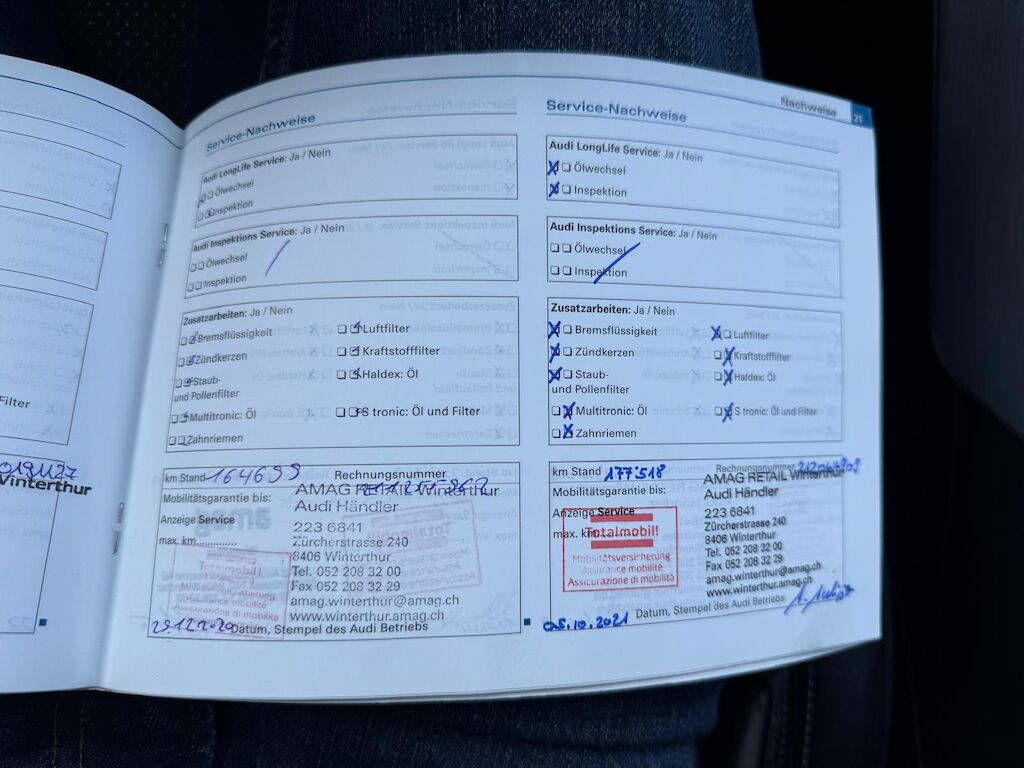 Filter
Winterthur
Service-Nachweise
Audi LongLife Service: Ja / Nein
Ölwechsel
Inspektion
Audi Inspektions Service: Ja / Nein
Ölwechsel
Inspektion
Zusatzarbeiten: Ja / Nein
Bremsflüssigkeit
Luftfilter
Zündkerzen
Kraftstofffilter
Staub-
und Pollenfilter
Haldex: Öl
Multitronic: Öl
S tronic: Öl und Filter
Zahnriemen
km Stand 164699 Rechnungsnummer
Mobilitätsgarantie bis:
AMAG RETAIL Winterthur
Audi Händler
Anzeige Service
223 6841
max. km
Zürcherstrasse 240
8406 Winterthur
Tel. 052 208 32 00
Fax 052 208 32 29
amag.winterthur@amag.ch
www.winterthur.amag.ch
Totalmobil!
29.12.2020 Datum, Stempel des Audi Betriebs
Nachweise 21
Service-Nachweise
Audi LongLife Service: Ja / Nein
Ölwechsel
Inspektion
Audi Inspektions Service: Ja / Nein
Ölwechsel
Inspektion
Zusatzarbeiten: Ja / Nein
Bremsflüssigkeit
Luftfilter
Zündkerzen
Kraftstofffilter
Staub-
und Pollenfilter
Haldex: Öl
Multitronic: Öl
S tronic: Öl und Filter
Zahnriemen
km Stand 177'518 Rechnungsnummer
Mobilitätsgarantie bis:
AMAG RETAIL Winterthur
Audi Händler
Anzeige Service
223 6841
max. km
Zürcherstrasse 240
8406 Winterthur
Tel. 052 208 32 00
Fax 052 208 32 29
amag.winterthur@amag.ch
www.winterthur.amag.ch
Totalmobil!
Mobilitätsversicherung
Assurance mobilité
Assicurazione di mobilità
05.10.2021 Datum, Stempel des Audi Betriebs